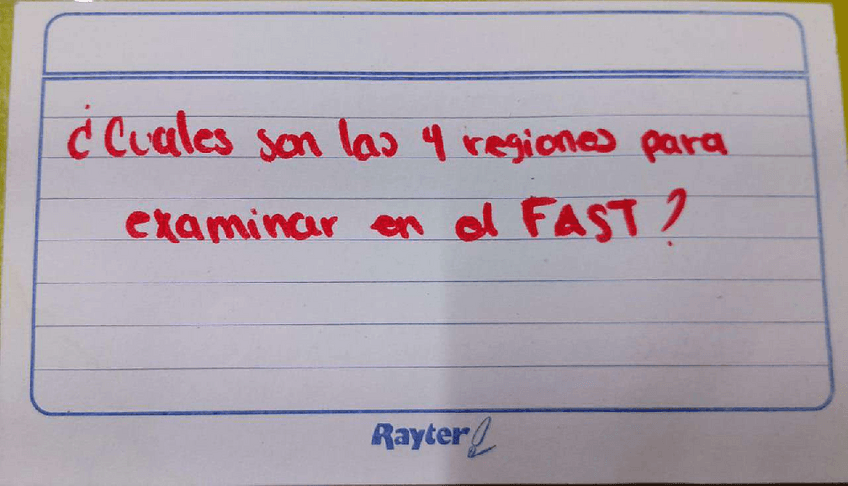 ¿Cuales son las 4 regiones para
examinar en el FAST?
Rayter